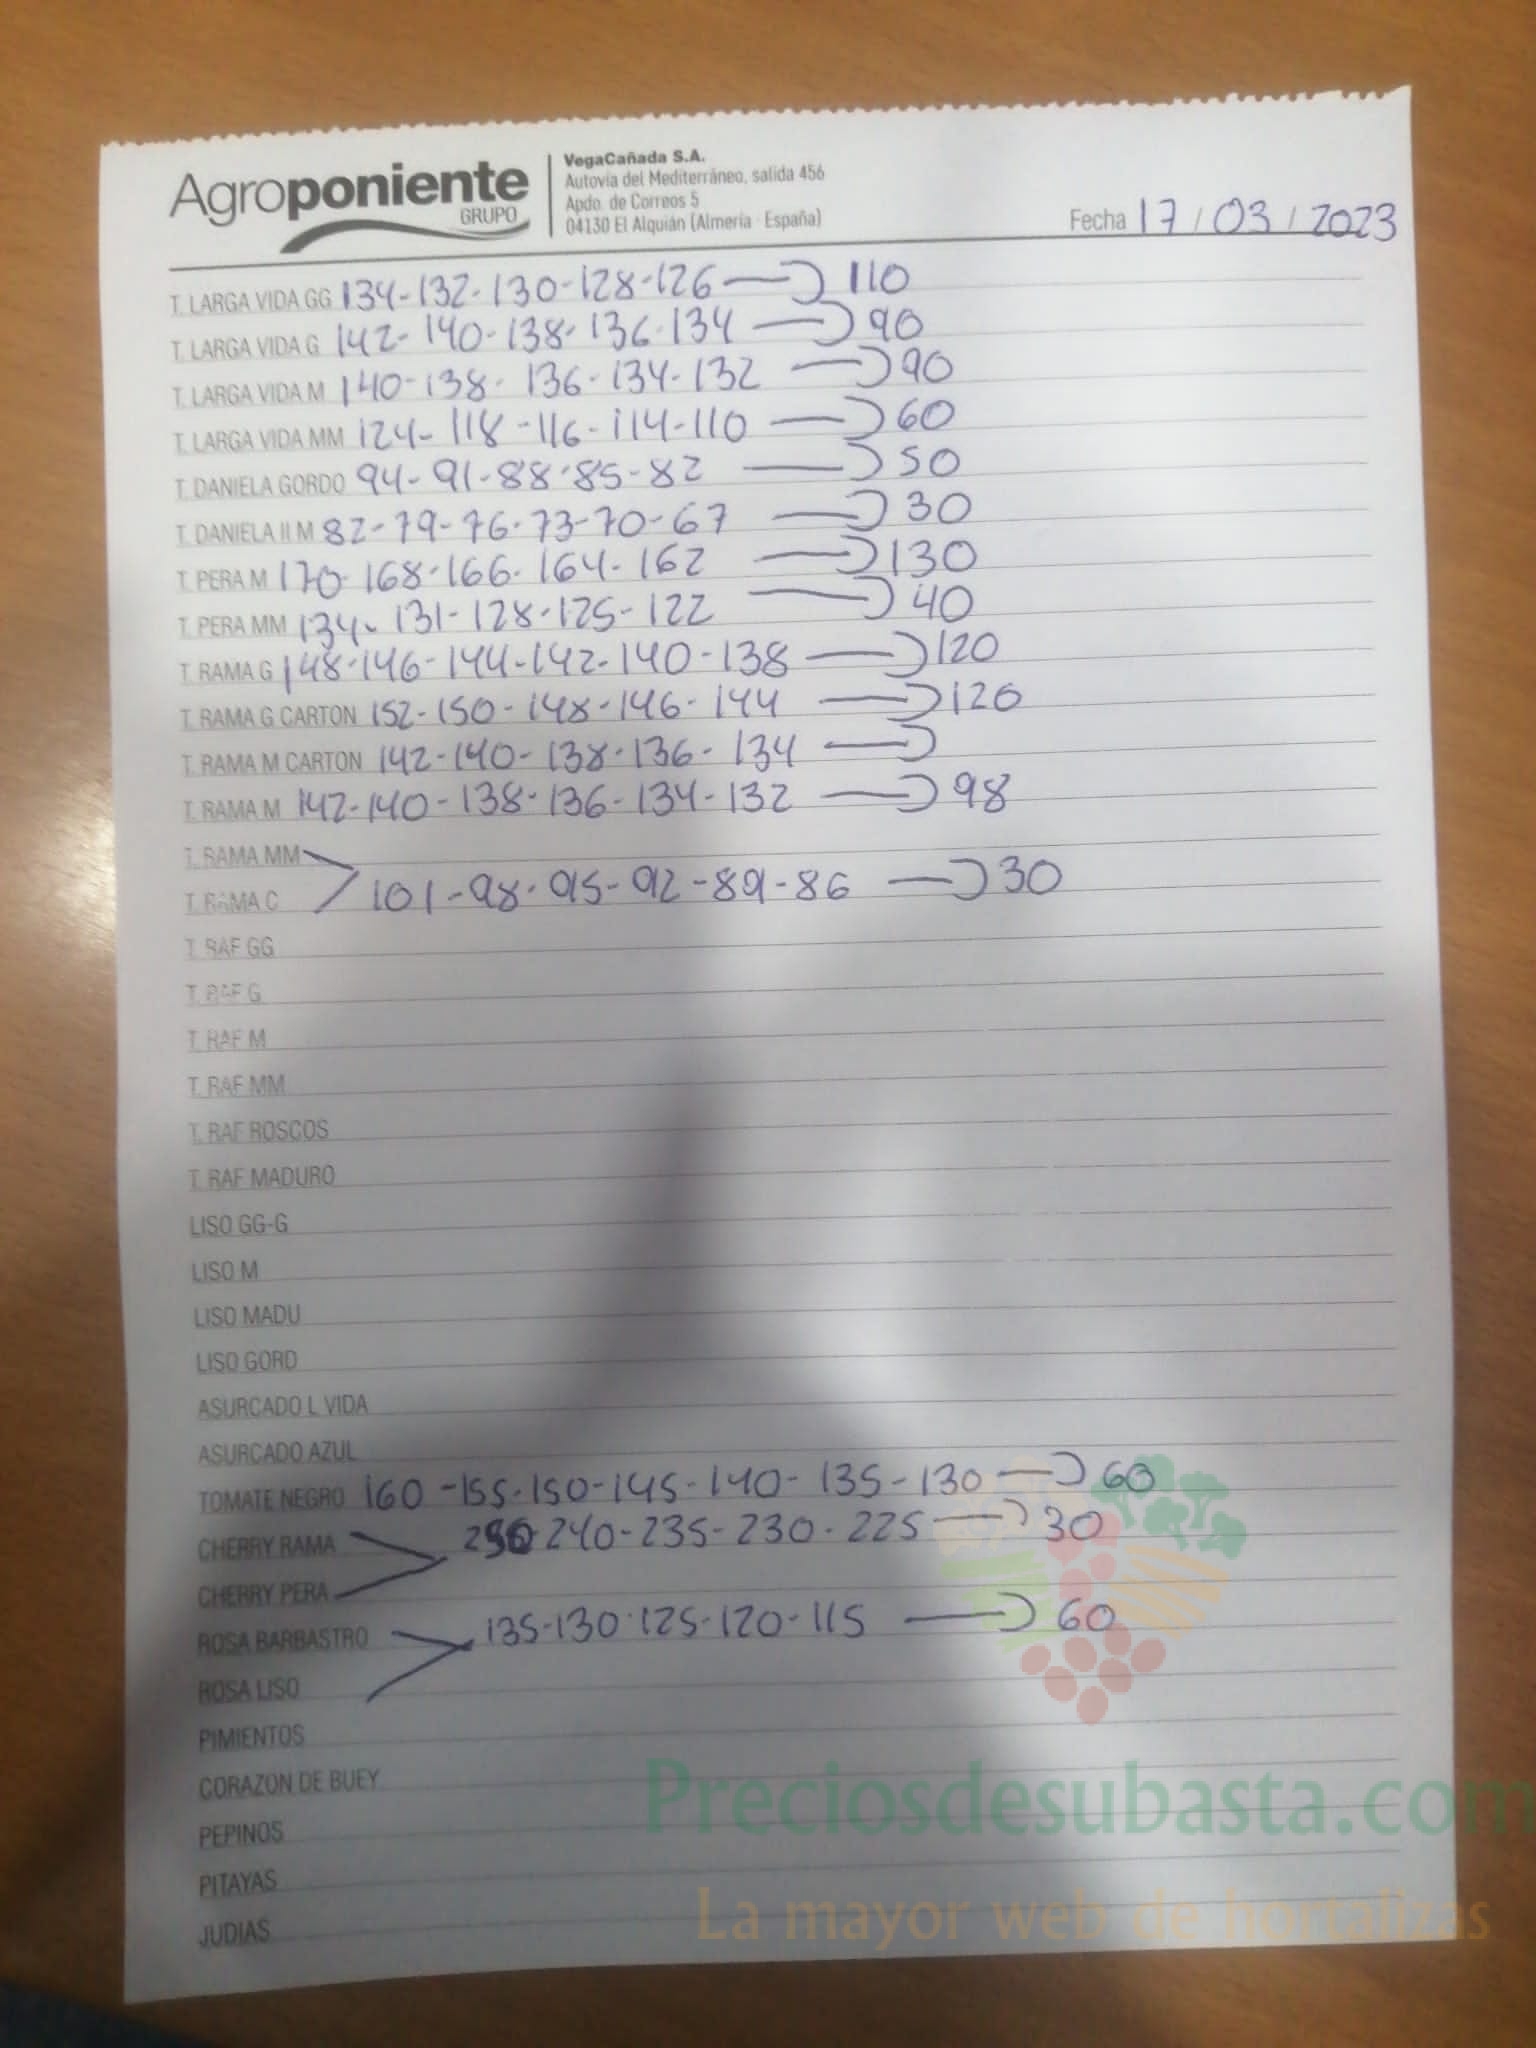 Agroponiente
GRUPO
VegaCañada S.A.
Autovía del Mediterráneo, salida 456
Apdo. de Correos 5
04130 El Alquián (Almería - España)
Fecha 17 / 03 / 2023
T. LARGA VIDA GG 134-132-130-128-126 110
T. LARGA VIDA G 142-140-138-136-134 90
T. LARGA VIDA M 140-138-136-134-132 90
T. LARGA VIDA MM 124-118-116-114-110 60
T. DANIELA GORDO 94-91-88-85-82 50
T. DANIELA II M 82-79-76-73-70-67 30
T. PERA M 170-168-166-164-162 130
T. PERA MM 134-131-128-125-122 40
T. RAMA G 148-146-144-142-140-138 120
T. RAMA G CARTON 152-150-148-146-144 120
T. RAMA M CARTON 142-140-138-136-134
T. RAMA M 142-140-138-136-134-132 98
T. RAMA MM
T. RAMA C 101-98-95-92-89-86 30
T. RAF GG
T. RAF G
T. RAF M
T. RAF MM
T. RAF ROSCOS
T. RAF MADURO
LISO GG-G
LISO M
LISO MADU
LISO GORD
ASURCADO L VIDA
ASURCADO AZUL
TOMATE NEGRO 160-155-150-145-140-135-130 60
CHERRY RAMA 240-235-230-225 30
CHERRY PERA
ROSA BARBASTRO 135-130-125-120-115 60
ROSA LISO
PIMIENTOS
CORAZON DE BUEY
PEPINOS
PITAYAS
JUDIAS
Preciosdesubasta.com
La mayor web de hortalizas